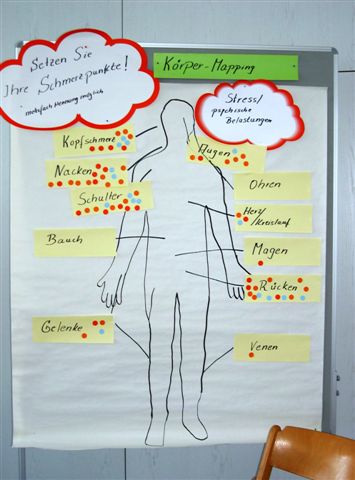 Setzen Sie
Ihre Schmerzpunkte!
mehrfach Nennung möglich
Körper-Mapping
Stress/
psychische
Belastungen
Kopfschmerz
Augen
Nacken
Schulter
Ohren
Herz/
Kreislauf
Bauch
Magen
Rücken
Gelenke
Venen